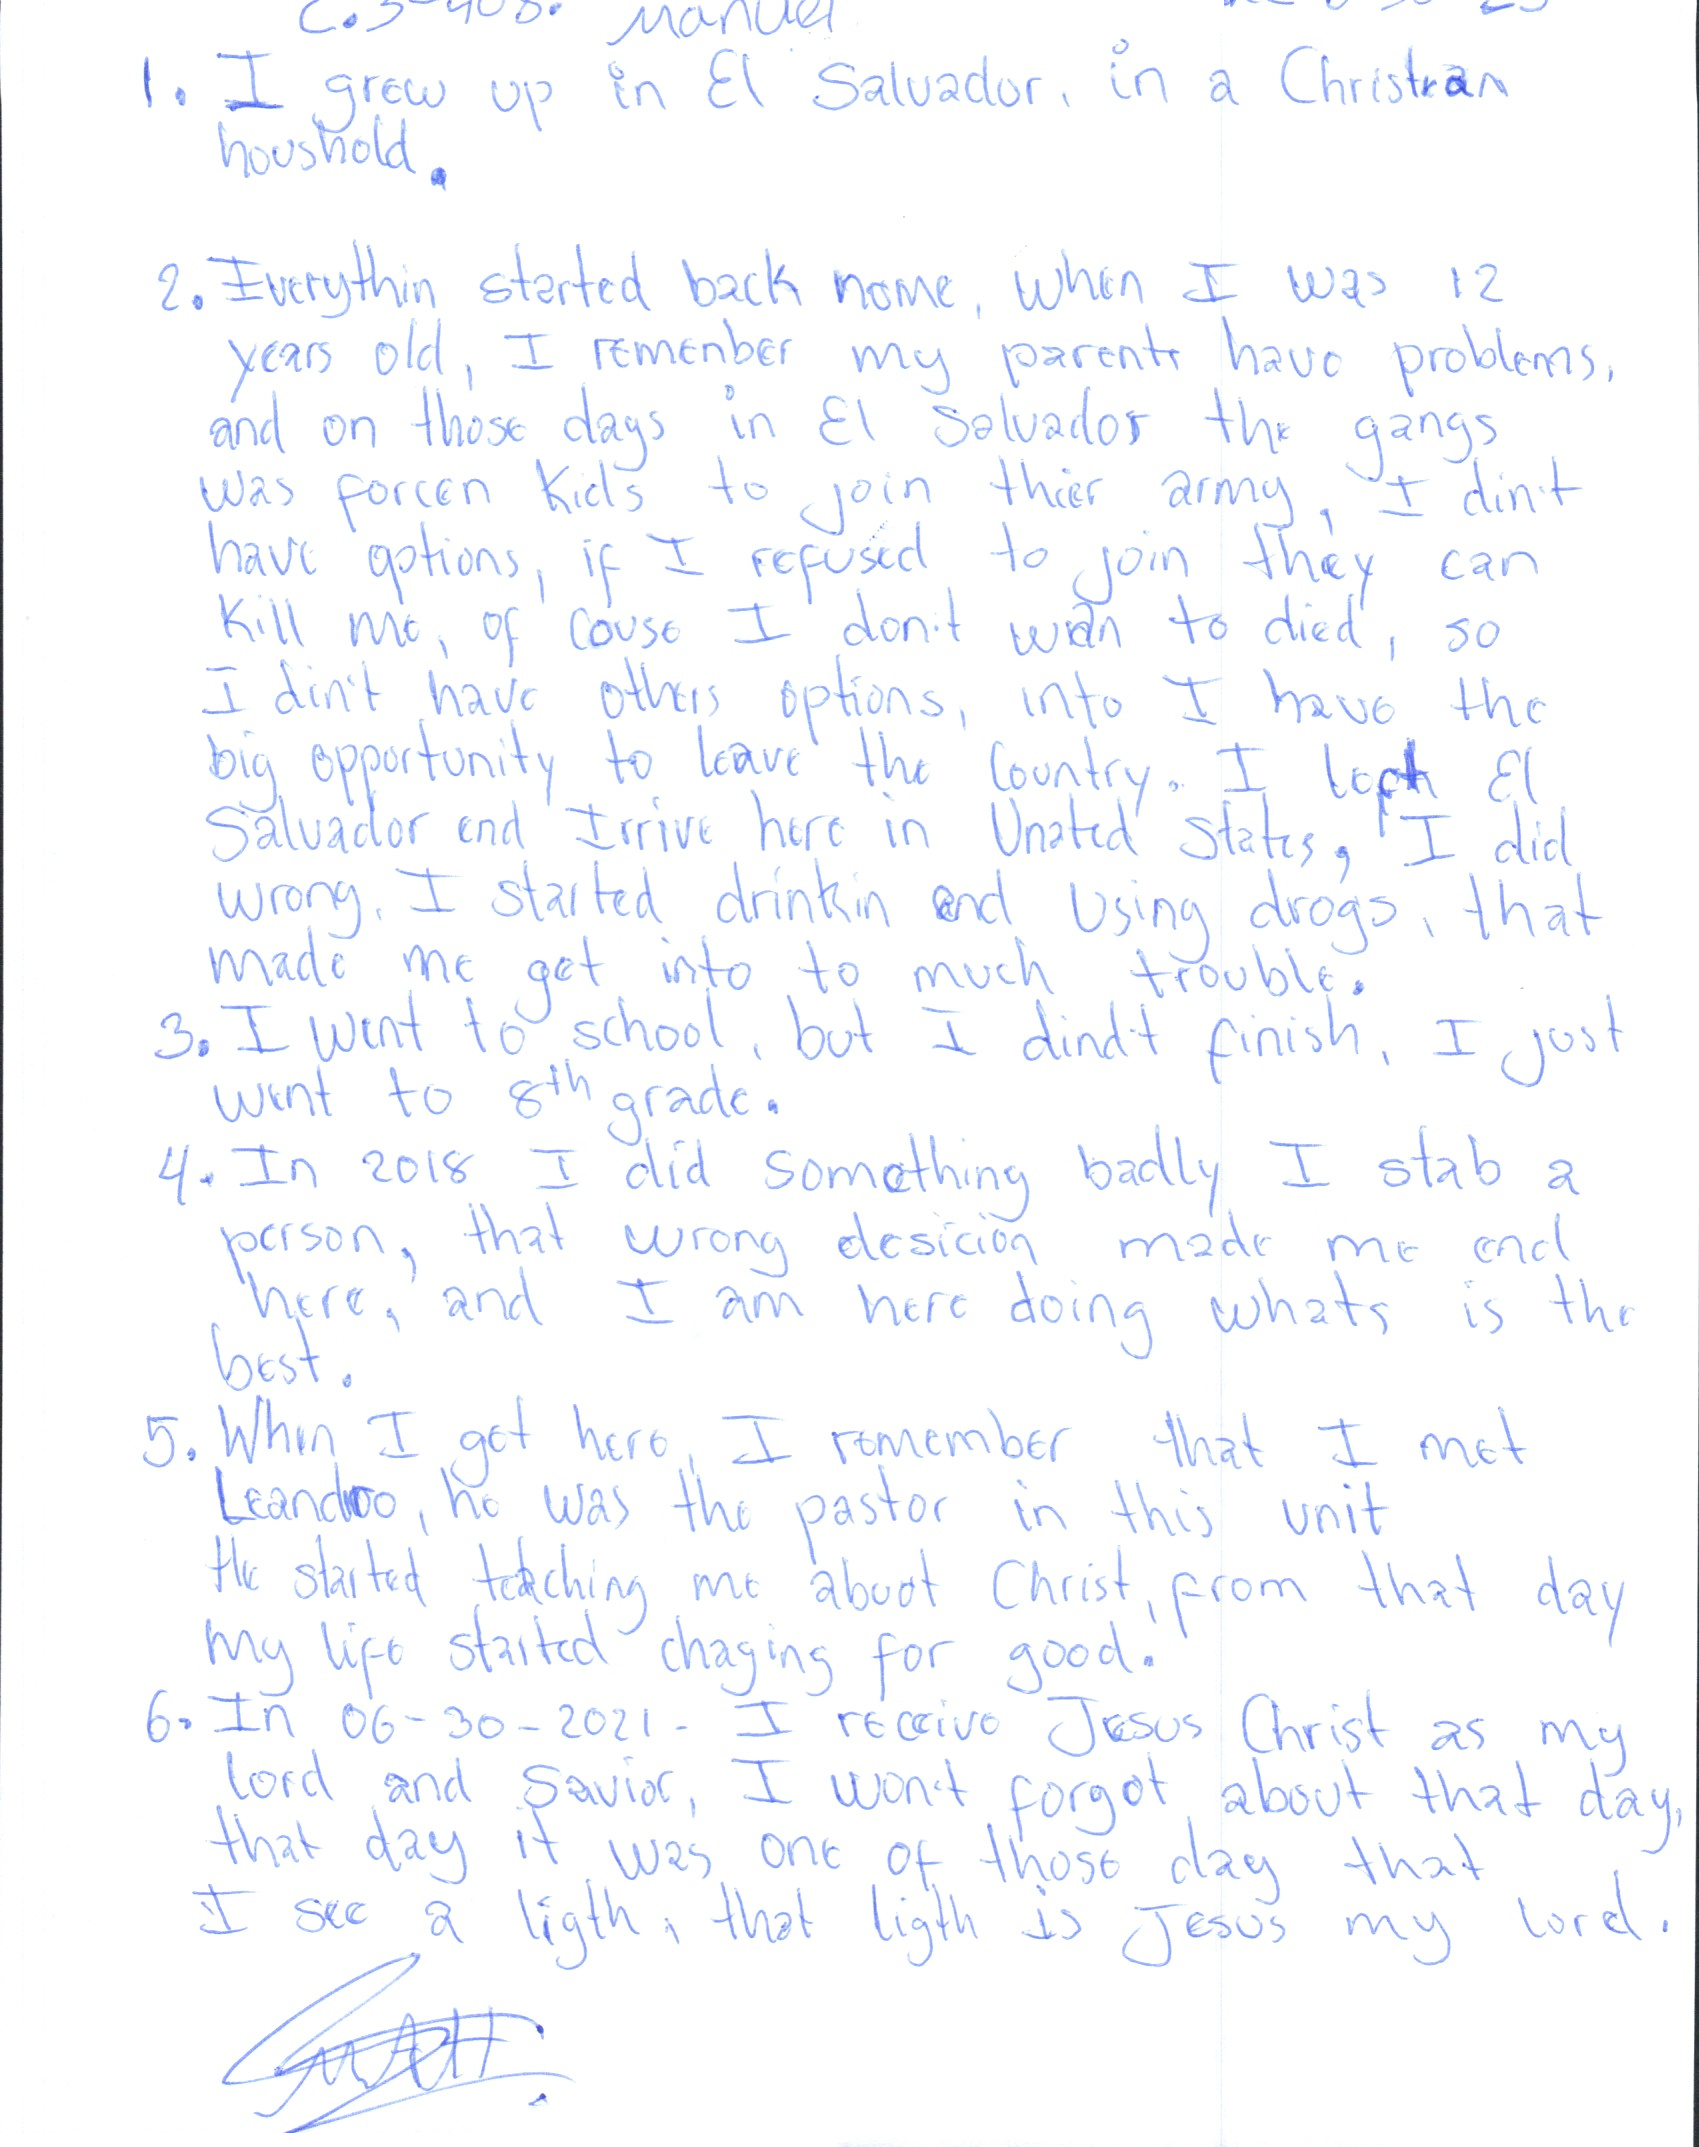 Manuel
1. I grew up in El Salvador, in a Christian
houshold.
2. Everythin started back home, when I was 12
years old, I remenber my parents have problems,
and on those days in El Salvador the gangs
was forcen kids to join thier army, I din't
have options, if I refused to join they can
kill me, of couse I don't wan to died, so
I din't have others options, into I have the
big opportunity to leave the country. I left El
Salvador end Irrive here in Unated States, I did
wrong. I started drinkin and using drogs, that
made me get into to much trouble.
3. I went to school, but I dind't finish, I just
went to 8th grade.
4. In 2018 I did something badly I stab a
person, that wrong desición made me end
here, and I am here doing whats is the
best.
5. When I get here, I remember that I met
Leandro, he was the pastor in this unit
He started teaching me abuot Christ, from that day
my life started chaging for good.
6. In 06-30-2021- I receive Jesus Christ as my
lord and Savior, I won't forgot about that day,
that day it was one of those day that
I see a ligth, that ligth is Jesus my lord.